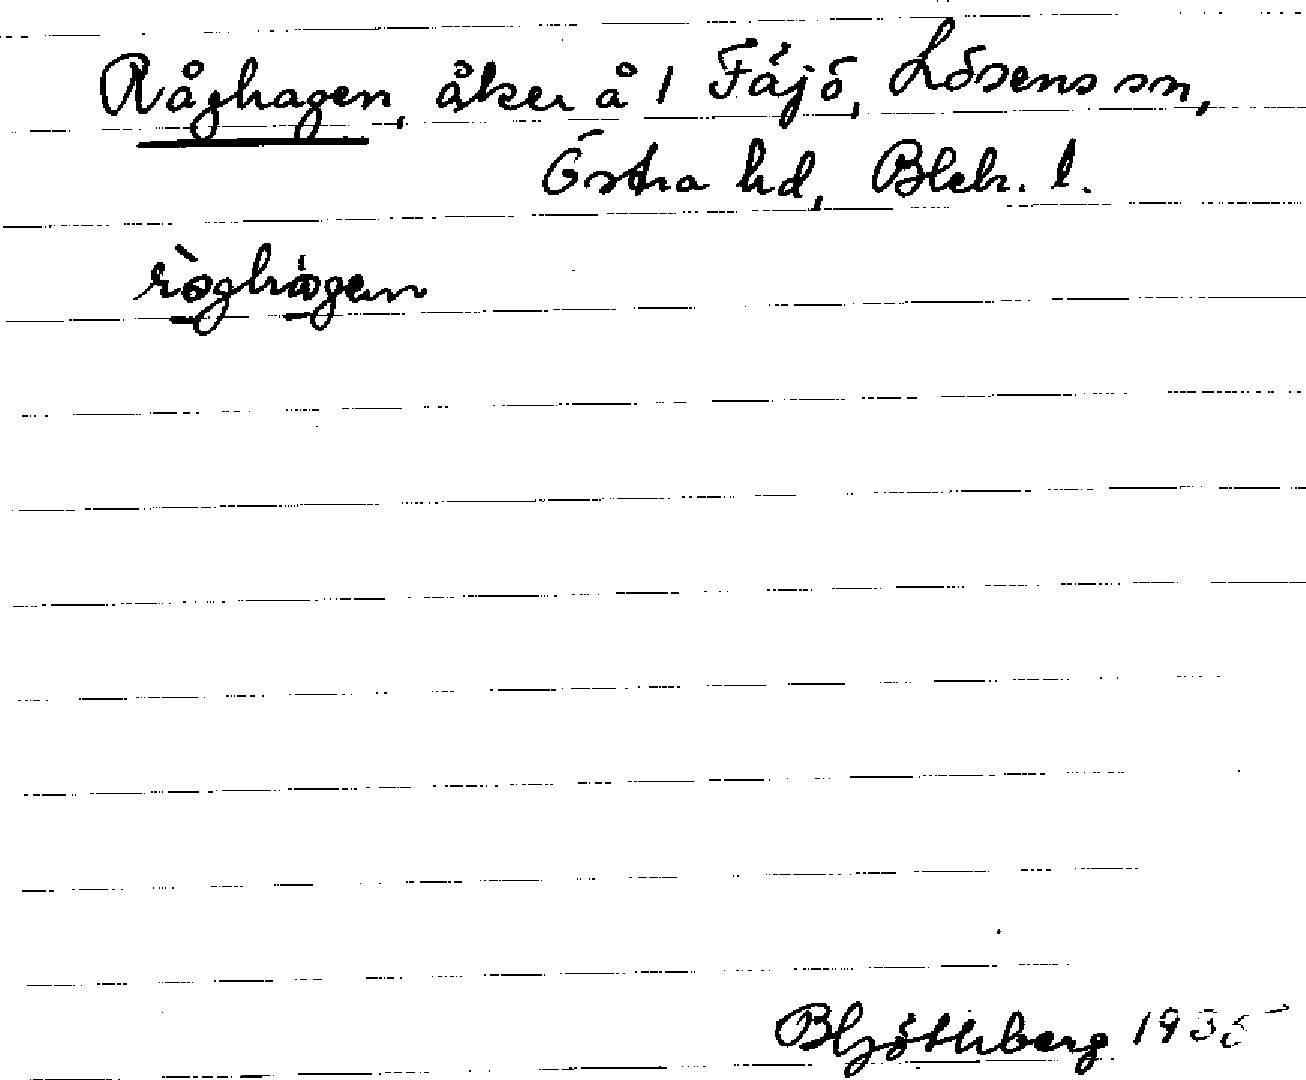 Råghagen, åker å 1 Fäjö, Lösens sn,
Östra hd, Blek. l.
ròghágen
B Hjöthberg 1935